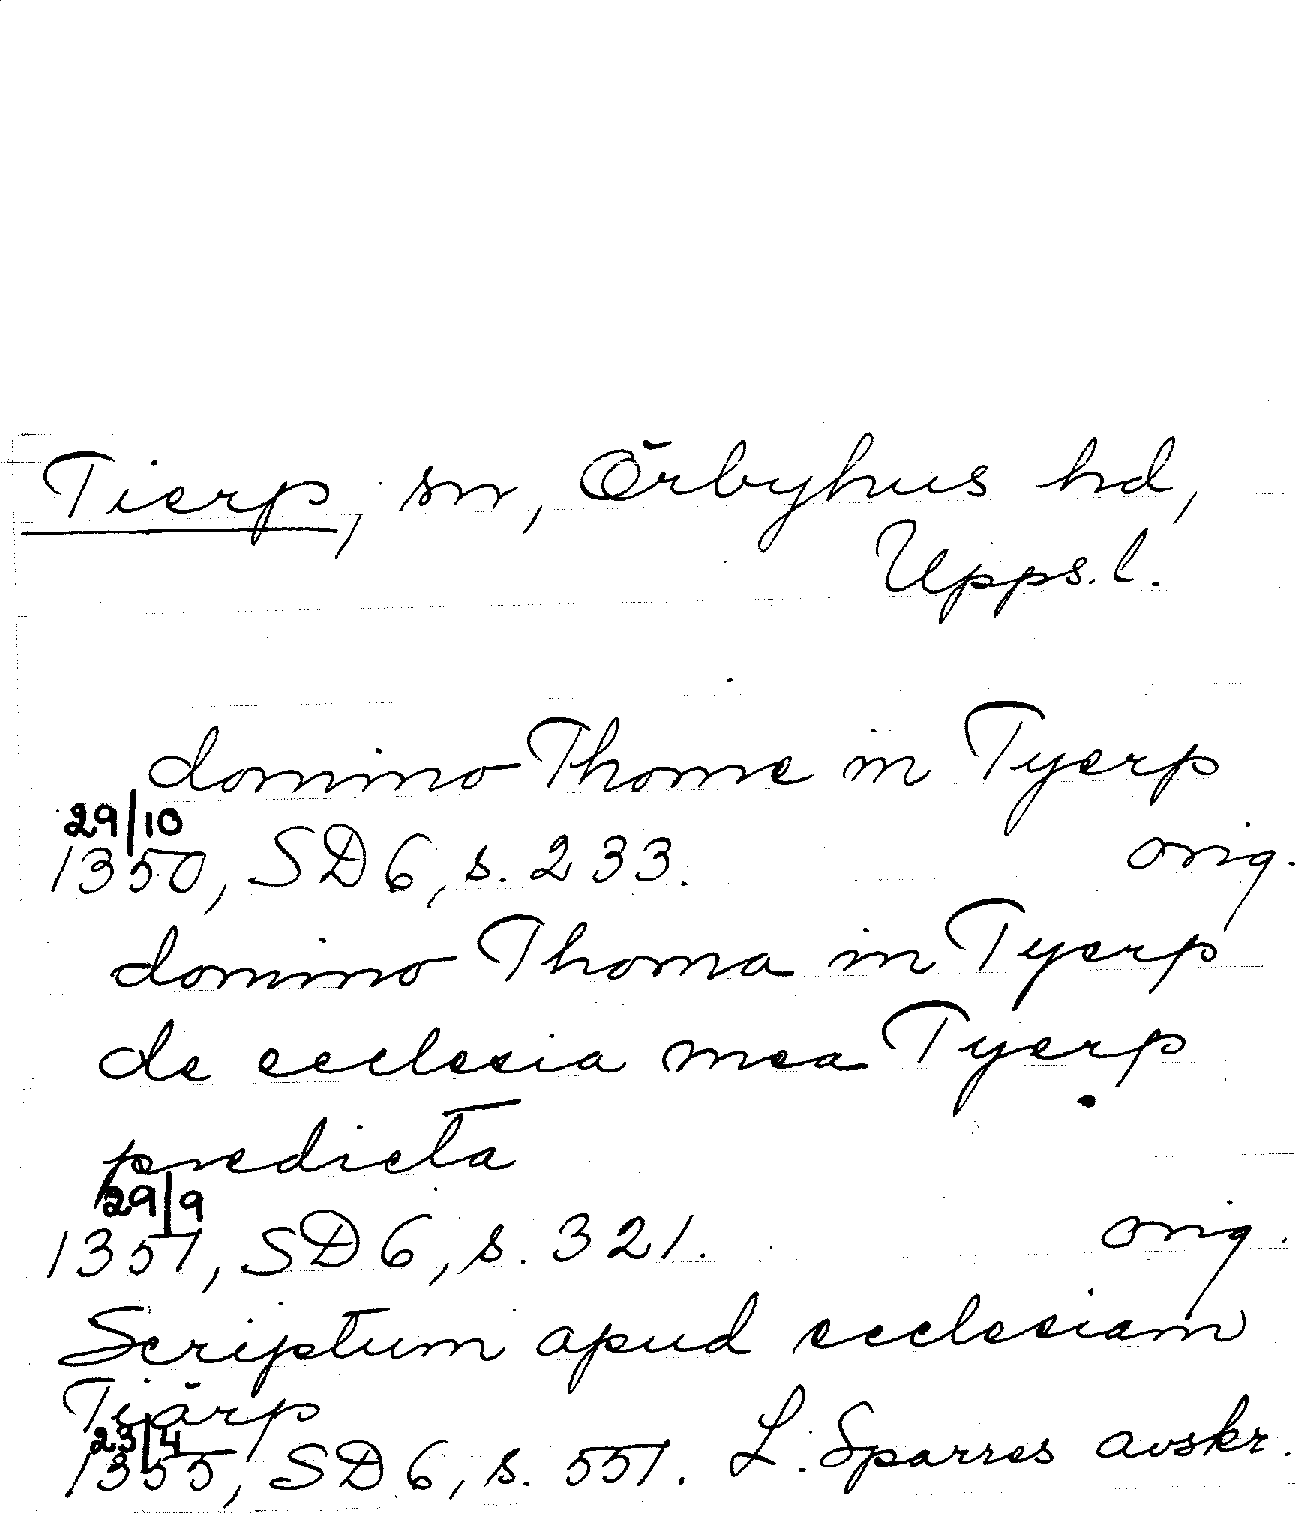 Tierp, sn, Örbyhus hd,
Upps. l.
domino Thome in Tyerp
29/10
1350, SD 6, s. 233. orig.
domino Thoma in Tyerp
de ecclesia mea Tyerp
predicta
29/9
1351, SD 6, s. 321. orig.
Scriptum apud ecclesiam
Tiärp
23/4
1355, SD 6, s. 551. L. Sparres avskr.